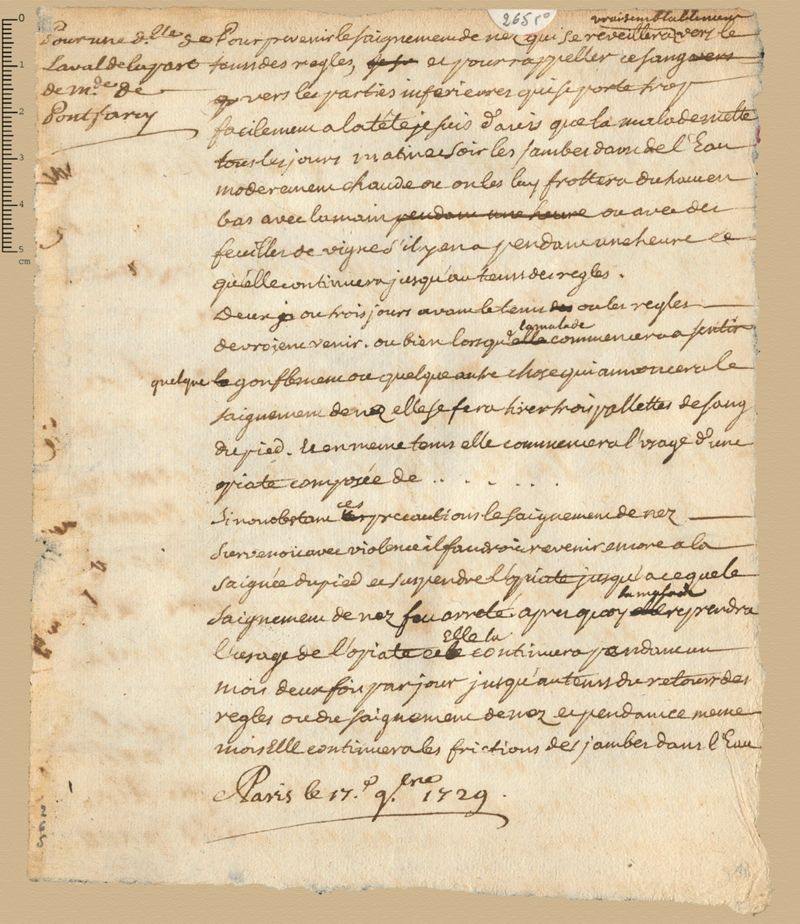 265 r°
Pour une d.lle de
Laval de la part
de Mde de
Pontfarcy
vraisemblablement
Pour prevenir le saignement de nez qui se reveillera vers le
tems des regles, et pour rappeller ce sang vers
vers les parties inferieures qui se porte trop
facilement a la tête je suis d'avis que la malade mette
tous les jours matin et soir les jambes dans de l'Eau
moderement chaude ou on les luy frottera du haut en
bas avec la main pendant une heure ou avec des
feuilles de vigne s'il y en a pendant une heure ce
qu'elle continuera jusqu'au tems des regles.
Deux jo ou trois jours avant le tems des ou les regles
devroient venir. ou bien lorsqu'elle commencera a sentir
la malade
quelque le gonflement ou quelque autre chose qui annoncera le
saignement de nez elle se fera tirer trois pallettes de sang
du pied. et en meme tems elle commencera l'usage d'une
opiate composée de . . . . . .
Si nonobstant les precautions le saignement de nez
ces
survenoit avec violence il faudroit revenir encore a la
saignée du pied et suspendre l'opiate jusqu'a ce que le
saignement de nez fut arreté. apres quoy elle reprendra
la malade
l'usage de l'opiate et le continuera pendant un
Elle la
mois deux fois par jour jusqu'au tems du retour des
regles ou du saignement de nez et pendant ce meme
mois Elle continuera les frictions des jambes dans l'Eau
Paris le 17.e 9.bre 1729.